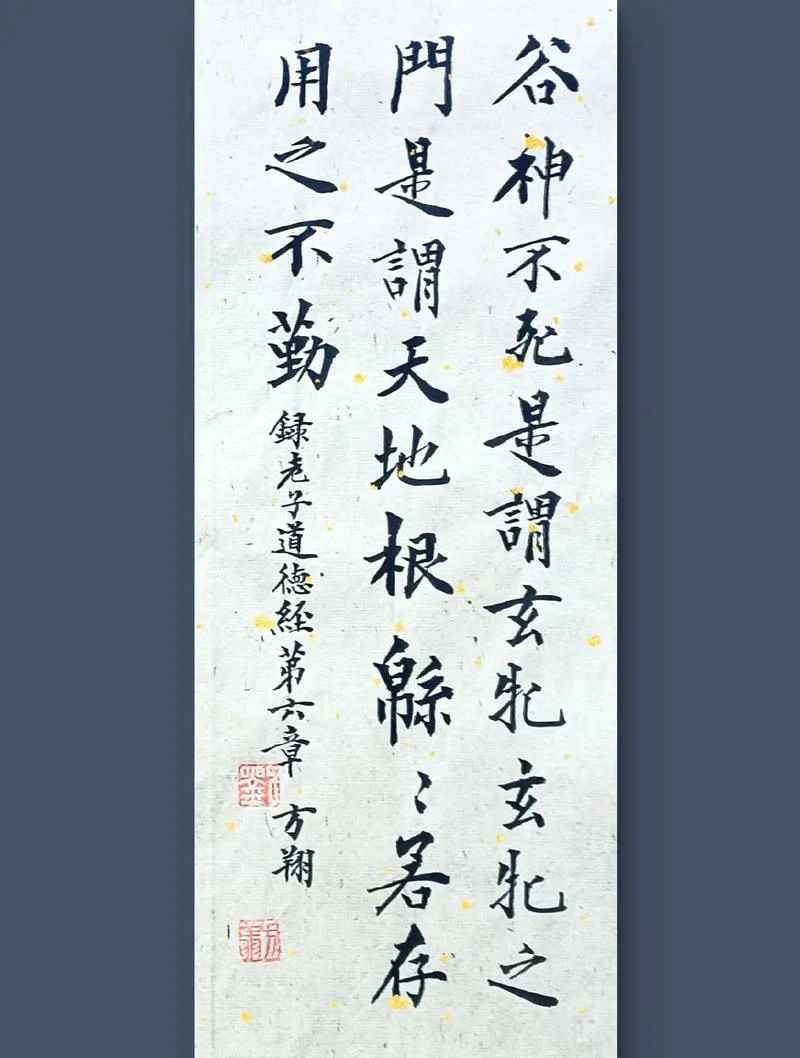 谷神不死是謂玄牝玄牝之
門是謂天地根緜〻若存
用之不勤
録老子道德經第六章 方翔